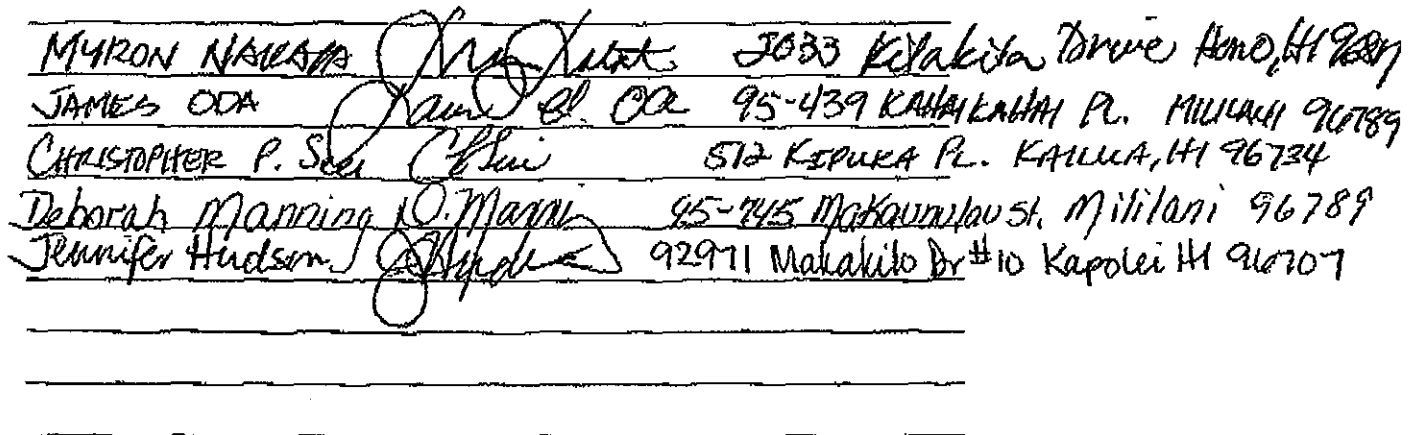 MYRON NAKATA 2033 Kilakila Drive Hono, HI 96817
JAMES ODA James E. Oda 95-439 KAHAIKAHAI PL. MILILANI 96789
CHRISTOPHER P. 512 KIPUKA PL. KAILUA, HI 96734
Deborah Manning D. Mann 95-745 Makaunulau st. Mililani 96789
Jennifer Hudson 92971 Makakilo Dr #10 Kapolei HI 96707